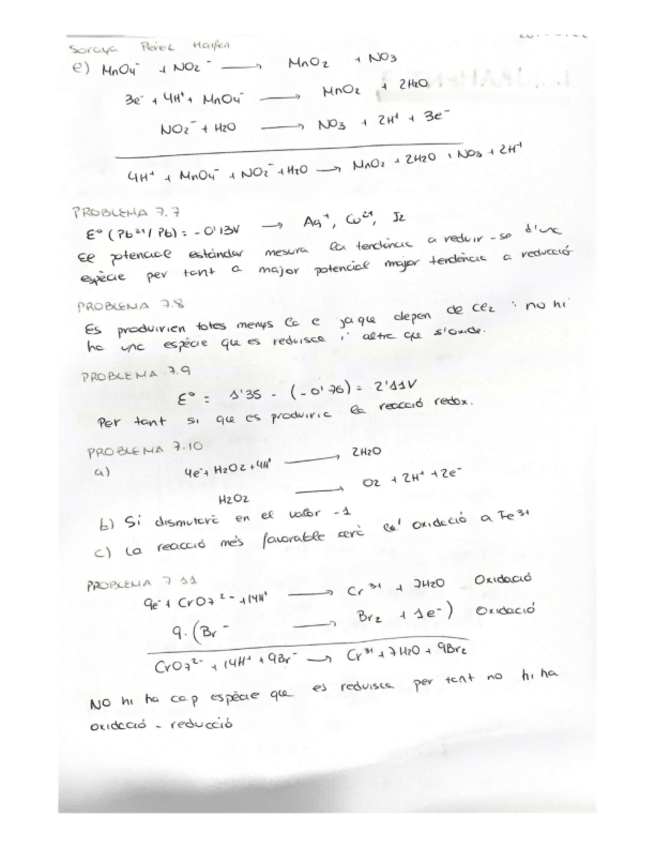 Soraya Pérez
e) MnO4⁻ + NO2⁻ → MnO2 + NO3
3e⁻ + 4H⁺ + MnO4⁻ → MnO2 + 2H2O
NO2⁻ + H2O → NO3 + 2H⁺ + 3e⁻
4H⁺ + MnO4⁻ + NO2⁻ + H2O → MnO2 + 2H2O + NO3 + 2H⁺
PROBLEMA 7.7
ε° (Pb²⁺/Pb) = -0'13V → Ag⁺, Cu²⁺, I2
El potencial estándar mesura la tendència a reduir-se d'una
espècie per tant a major potencial major tendència a reducció
PROBLEMA 7.8
Es produirien totes menys la e ja que depen de : no hi
ha una espècie que es reduisca i altra que s'oxide.
PROBLEMA 7.9
ε° = 1'35 - (-0'76) = 2'11V
Per tant si que es produiria la reacció redox.
PROBLEMA 7.10
a) 4e⁻ + H2O2 + 4H⁺ → 2H2O
H2O2 → O2 + 2H⁺ + 2e⁻
b) Si dismutarà en el valor -1
c) La reacció més favorable serà la oxidació a Fe3+
PROBLEMA 7.11
9e⁻ + CrO7²⁻ + 14H⁺ → Cr³⁺ + 7H2O Oxidació
9·(Br⁻ → Br2 + 1e⁻) Oxidació
CrO7²⁻ + 14H⁺ + 9Br⁻ → Cr³⁺ + 7H2O + 9Br2
NO hi ha cap espècie que es reduisca per tant no hi ha
oxidació - reducció